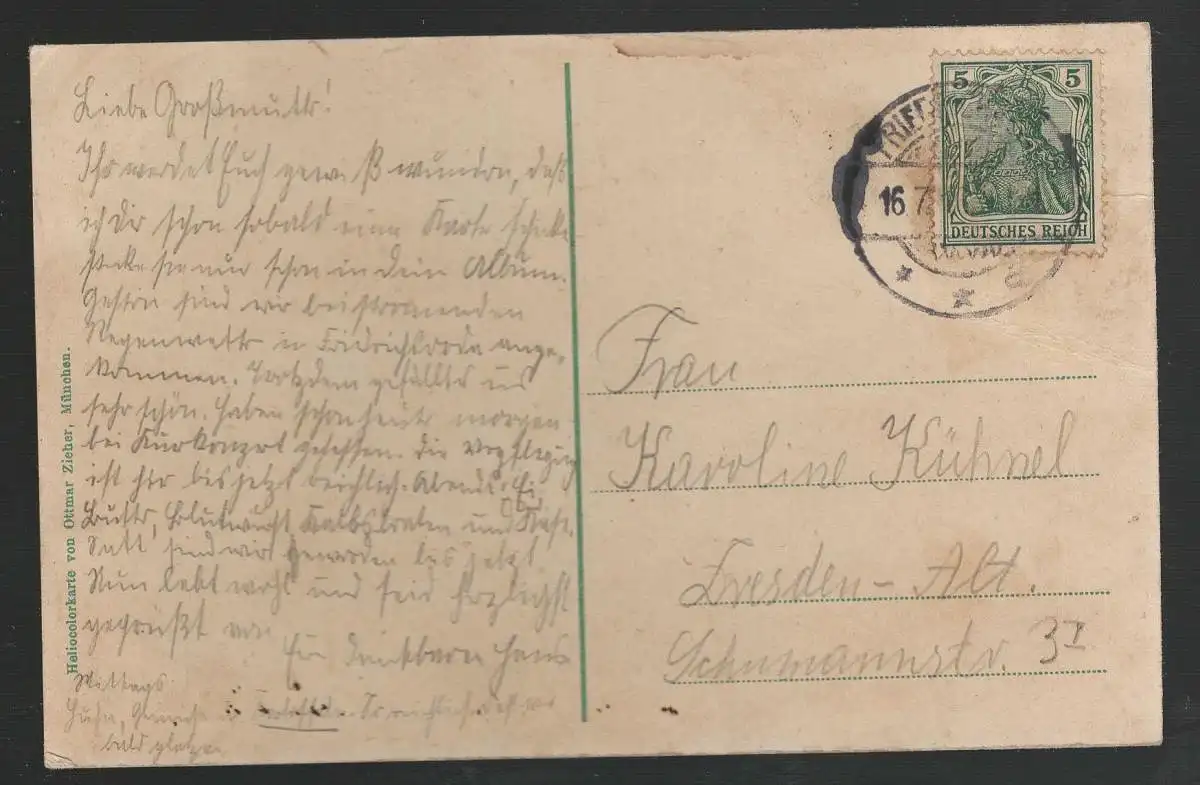 Liebe Großmutter!
Ihr werdet Euch gewiß wundern, daß
ich Dir schon sobald eine Karte schicke
stecke sie nur schon in dein Album.
Gestern sind wir bei strömenden
Regenwetter in Fridrichroda ange-
kommen. Trotzdem gefällts uns
sehr schön. Haben schon heute morgen
bei Kurkonzert gesessen. Die Verpflegung
ist hir bis jetzt reichlich. Abends: Ei
Butter, Blutwurst Kalbsbraten und Käse.
Satt sind wir geworden bis jetzt.
Nun lebt wohl und seid herzlichst
gegrüßt von
Hans
Mittags:
Huhn, Gemüse
bald platzen
Heliocolorkarte von Ottmar Zieher, München.
5 5
DEUTSCHES REICH
FRIED
16 7
Frau
Karoline Kühnel
Dresden-Alt.
Schumannstr. 3 I